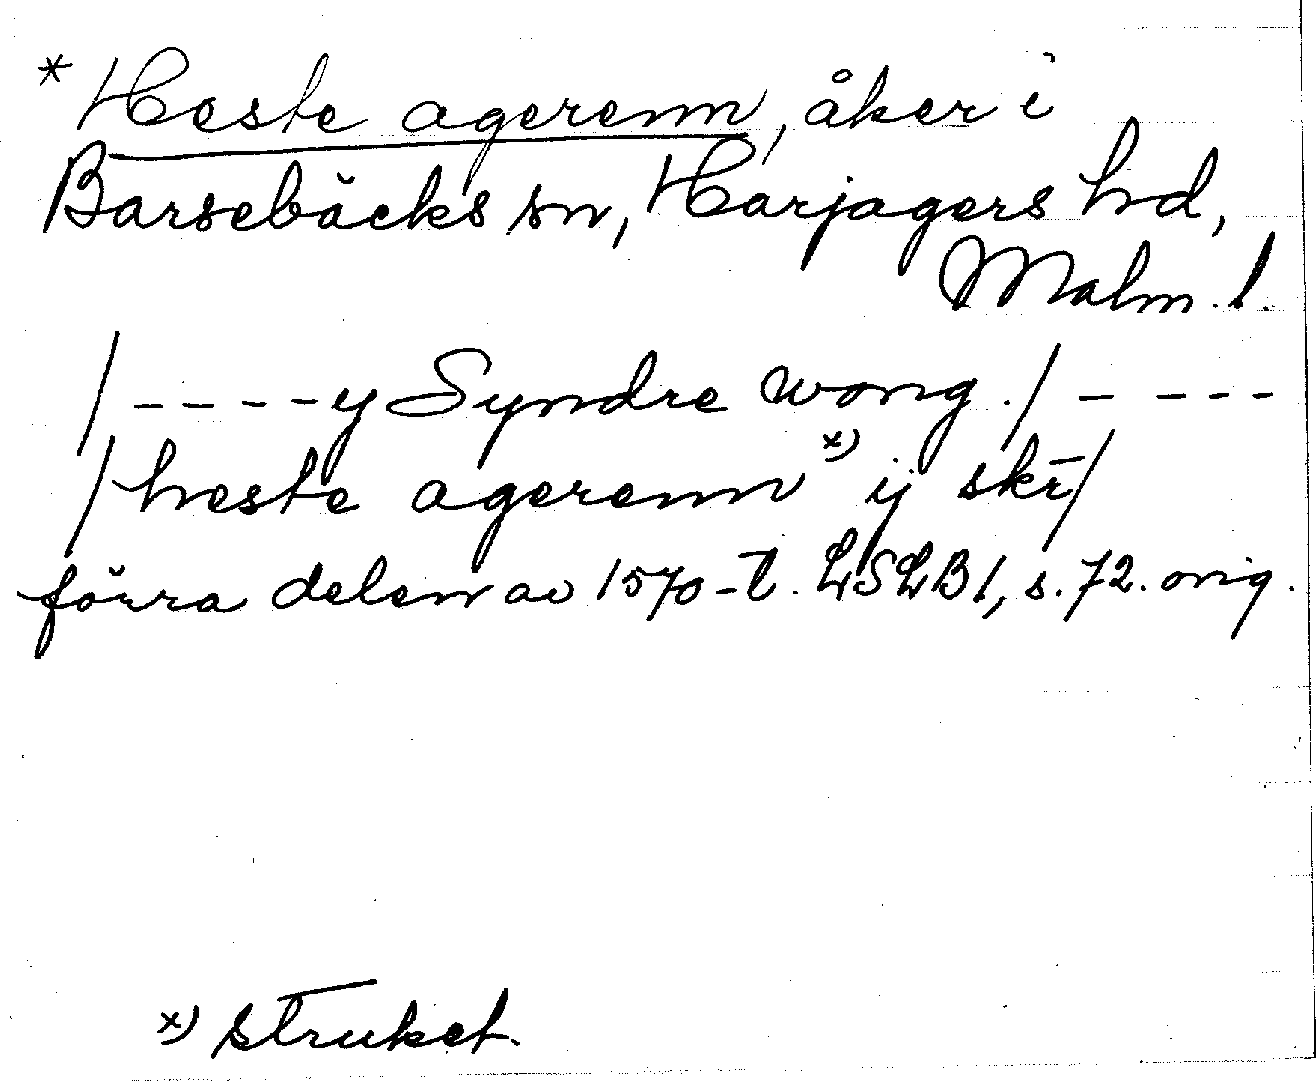 * Heste agerenn, åker i
Barsebäcks sn, Harjagers hd,
Malm. l.
/ - - - - y Syndre wong. / - - - -
/ heste agerenn x) ij skr̄ /
förra delen av 1570-t. LSLB 1, s. 72. orig.
x) struket.